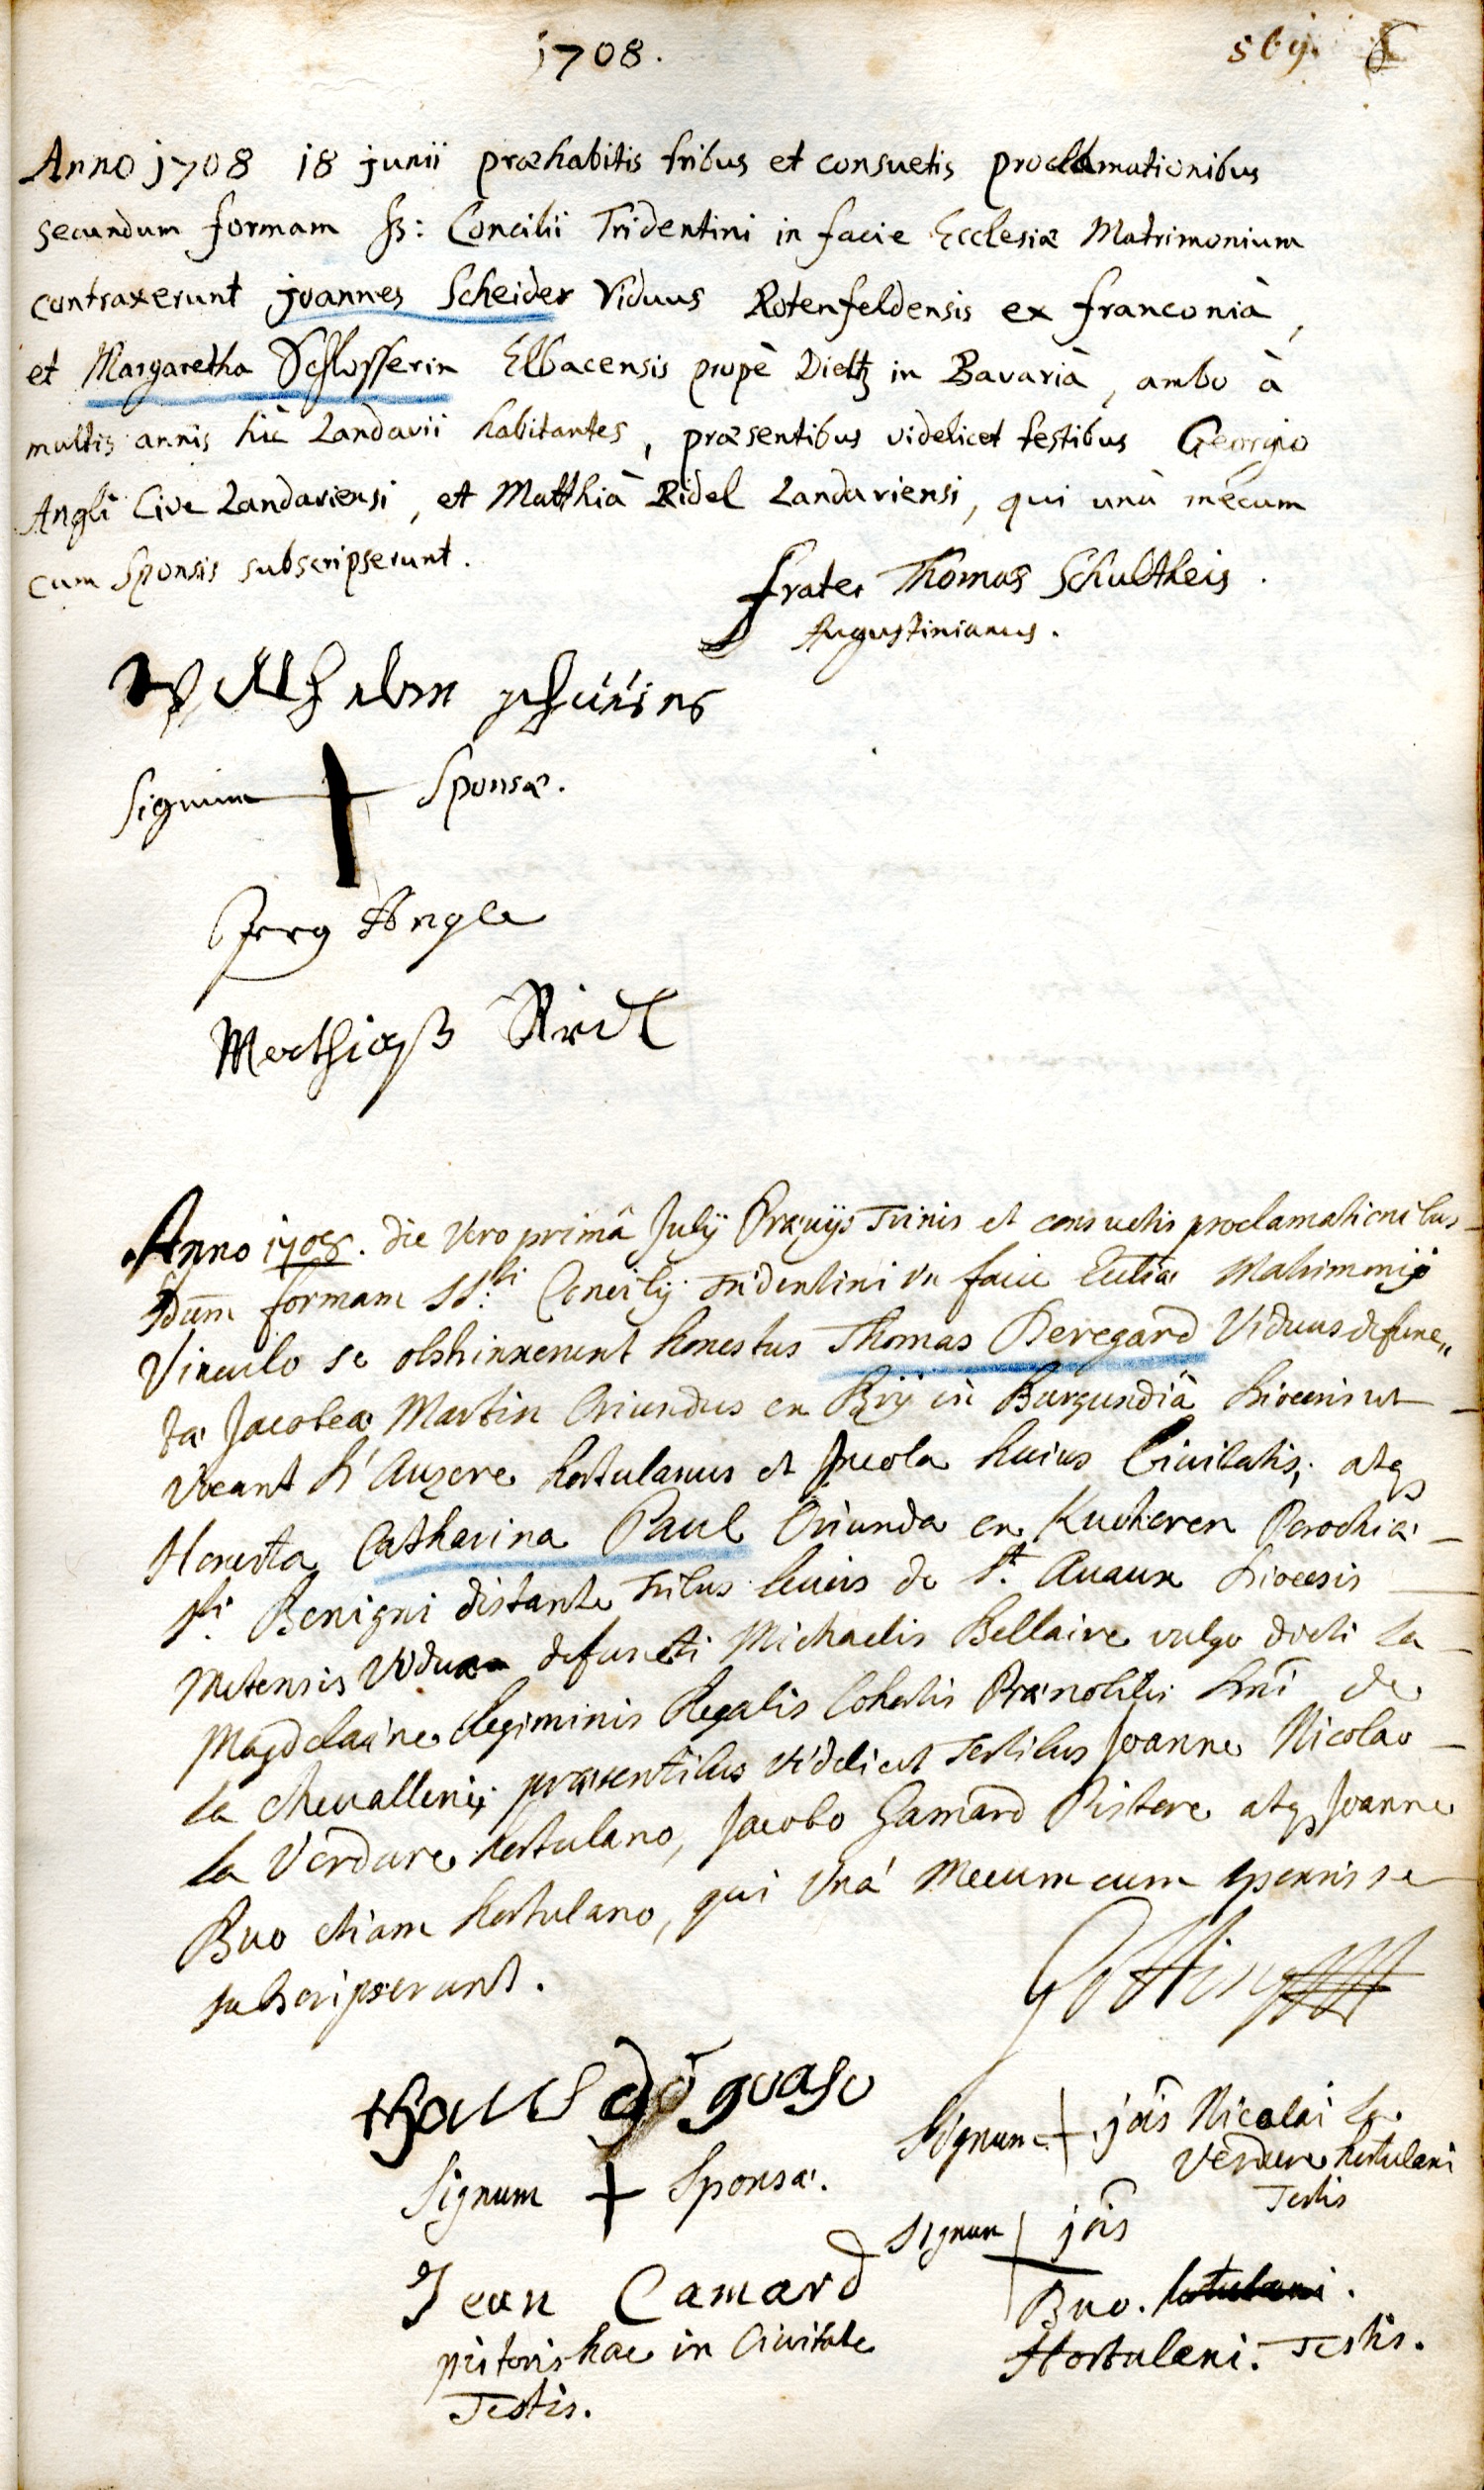 1708.
Anno 1708 18 junii præhabitis tribus et consuetis proclamationibus
secundum formam ss: Concilii Tridentini in facie Ecclesiæ Matrimonium
contraxerunt joannes Scheider Viduus Rotenfeldensis ex franconià,
et Margaretha Schlosserin Elbacensis propè Dieltz in Bavarià, ambo à
multis annis hìc Landavii habitantes, præsentibus videlicet testibus Georgio
Angli Cive Landaviensi, et Matthià Ridel Landaviensi, qui unà mecum
cum Sponsis subscripserunt.
frater Thomas Schultheis.
Augustinianus.
Signum + Sponsæ.
Jerg Angle
Mathiaß Ridl
Anno 1708. die Vero primâ Julÿ Præuijs Trinis et consuetis proclamationibus
sdum formam SS.ti Concilÿ Tridentini in facie Ecctiæ Matrimonij
Vinculo se obstrinxerunt honestus Thomas Beregard Viduus defunc„
tæ Jacobeæ Martin Oriundus ex Brij in Burgundiâ Diocesis ut
Vocant d'Auxere hortulanus et Jncola huius Ciuitatis, atq
Honesta Catharina Paul Oriunda ex Kucheren Parochiæ
Sti Benigni distante Tribus leucis de St. Auaux Diocesis
Metensis Vidua defuncti Michaelis Bellaire vulgo dicti La
Magdelaine Regiminis Regalis Cohortis Prænobilis Dni de
la Cheuallerie, præsentibus Videlicet Testibus Joanne Nicolao
la Verdure hortulano, Jacobo Gamard Pistore atq Joanne
Buo etiam hortulano, qui Vnà Mecum cum sponsis se
subscripserunt.
Signum + jois Nicolai La
Verdure hortulani
Testis
Signum + Sponsæ.
Signum + jois
Buo. hortulani.
Hortulani. Testis.
Jean Camard
pistoris hac in Ciuitate
Testis.